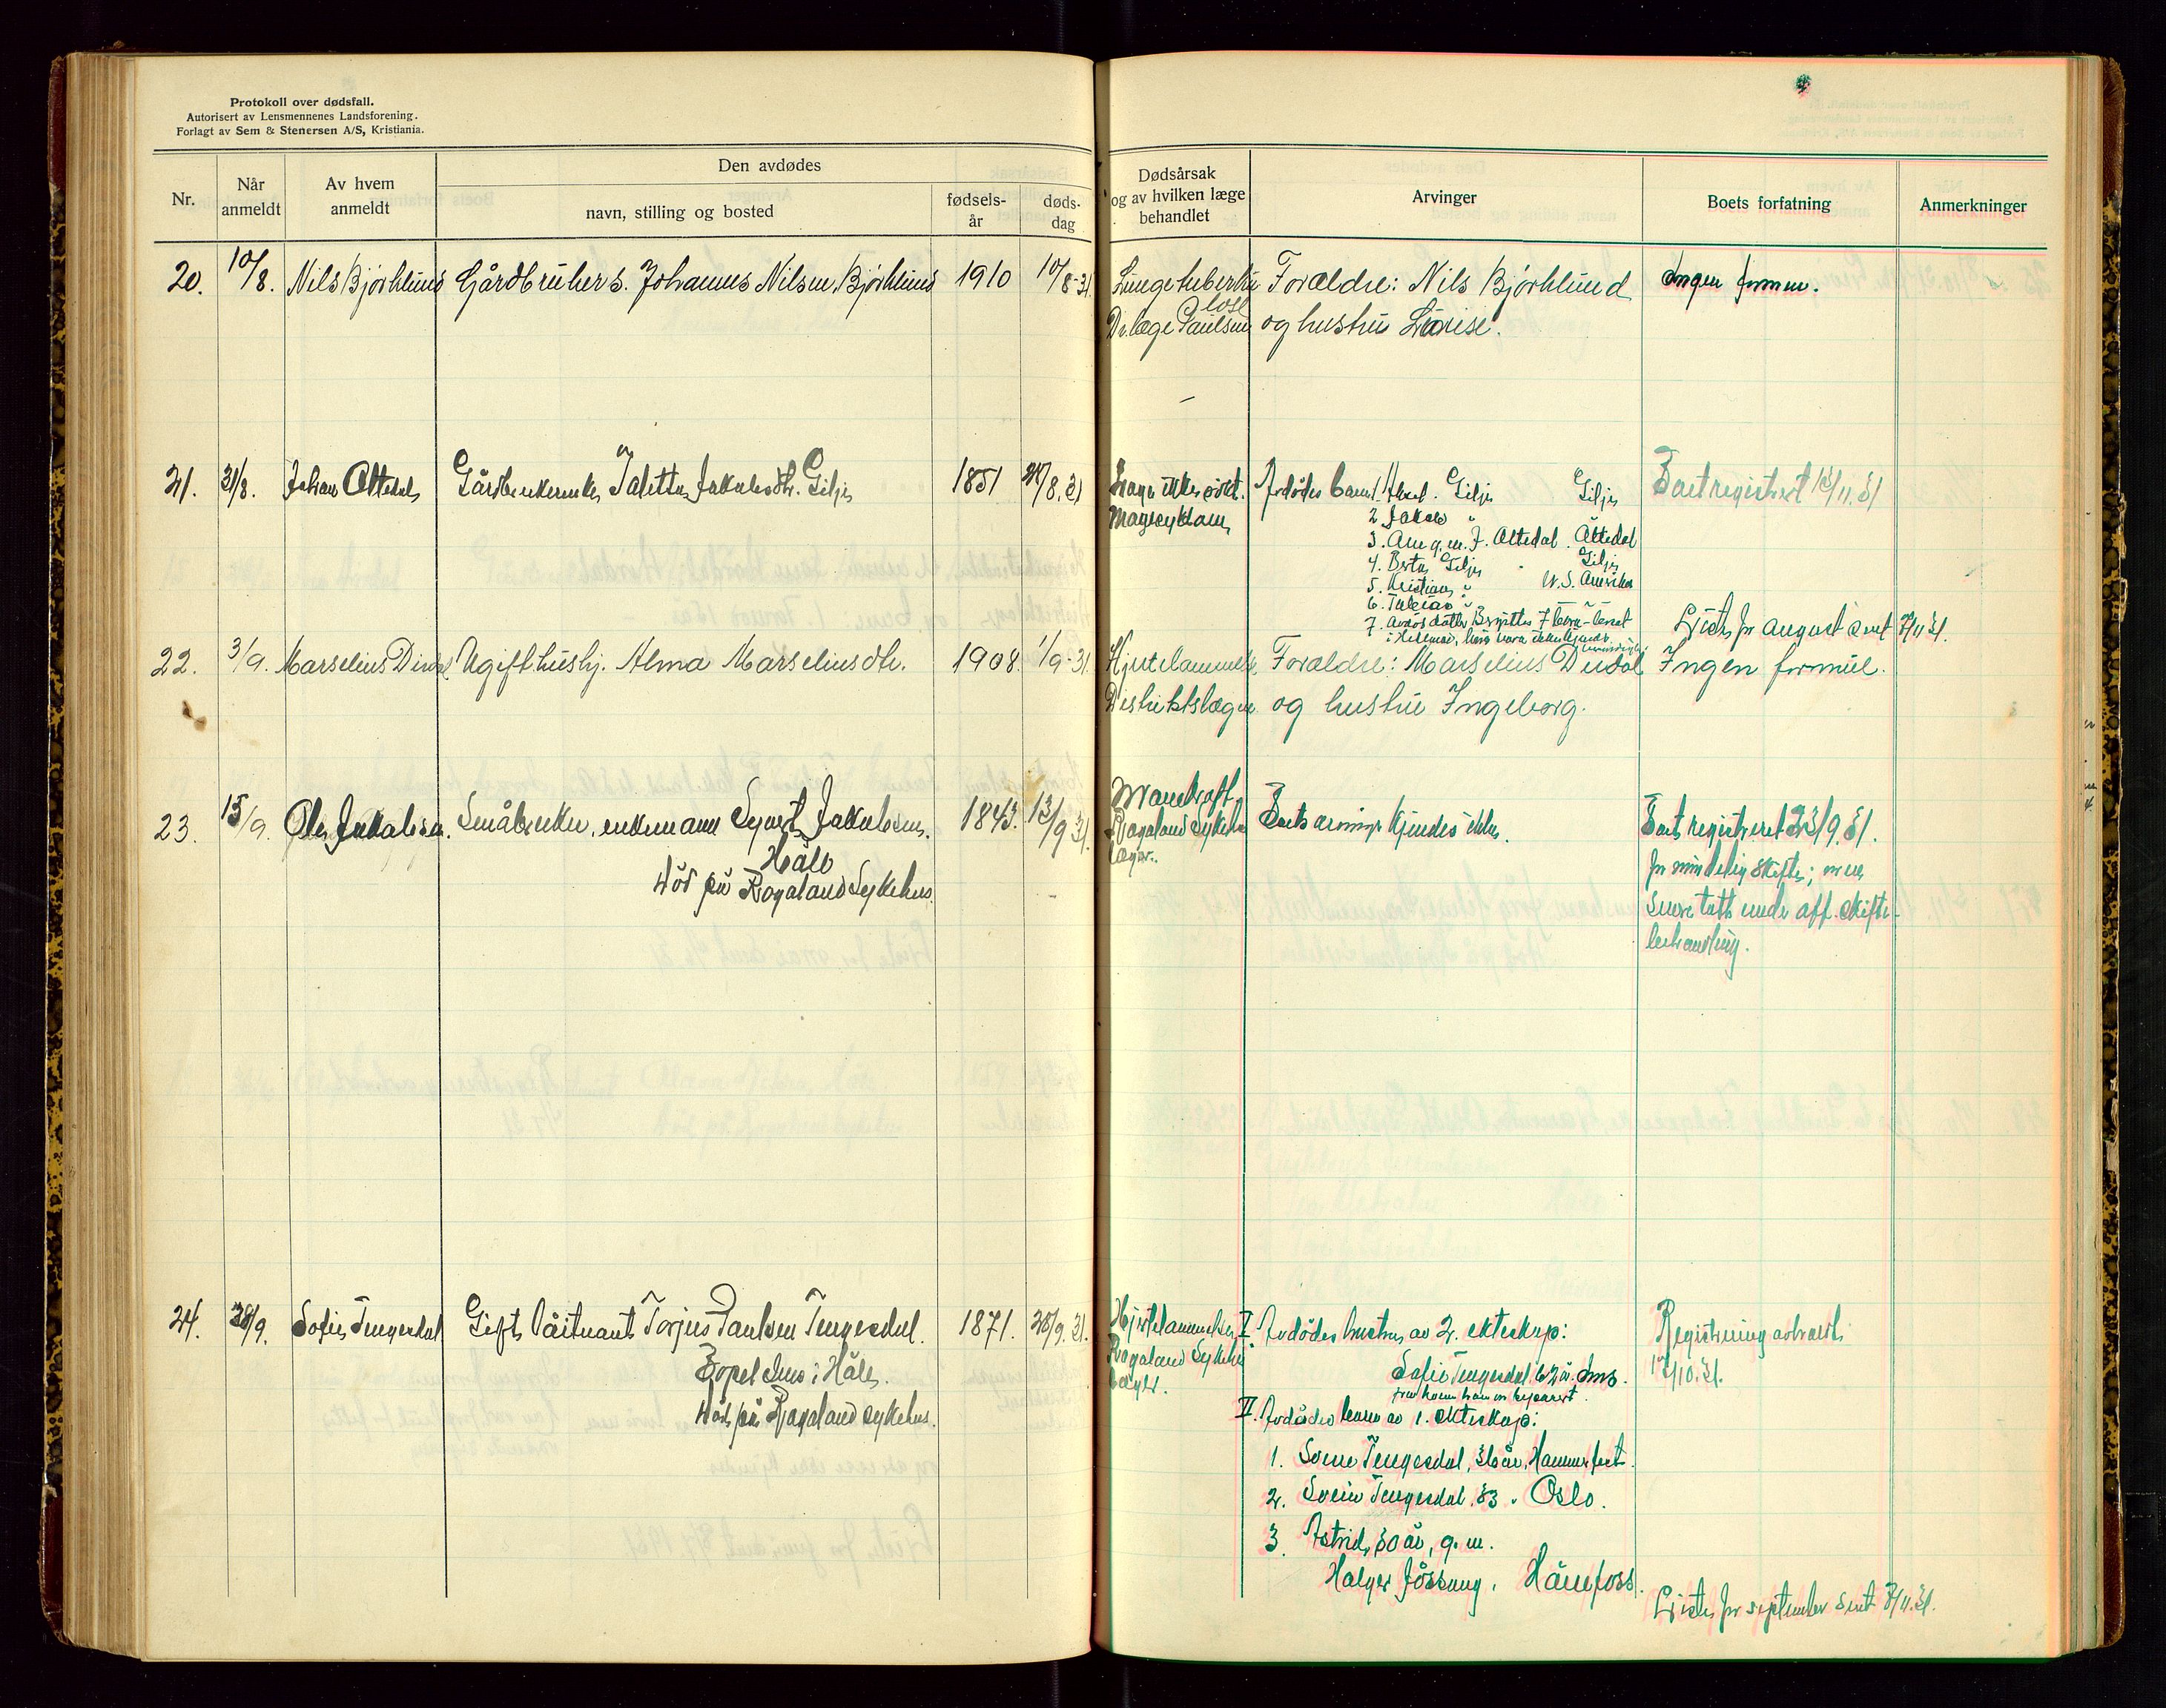 Protokoll over dødsfall.
Autorisert av Lensmennenes Landsforening.
Forlagt av Sem & Stenersen A/S, Kristiania.
Nr.
Når anmeldt
Av hvem anmeldt
Den avdødes
navn, stilling og bosted
fødsels-år
døds-dag
Dødsårsak og av hvilken læge behandlet
Arvinger
Boets forfatning
Anmerkninger
20. 10/8. Nils Bjørklund Gårdbruker s. Johannes Nilsen, Bjørklund 1910 10/8-31
Lungetuberku
lose
Dr.læge Paulsen
Forældre: Nils Bjørklund
og hustru Lovise.
Ingen formue.
21. 31/8. Johan Oltedal Gårdbrukerenke Taletta Jakobsdtr. Gilje 1851 24/8.31
Læge ikke søkt.
Mavesykdom
Avdødes barn 1. Gilje Gilje
2. Jakob "
3. Ane g.m. J. Oltedal. Oltedal
4. Berta Gilje Gilje
5. Kristian " N. S. Amerika
6. "
7. Avdød datter
Boet registrert 13/11.31
Liste for august sent 7/11 31.
22. 3/9. Marselius Dirdal Ugift hushj. Alma Marseliusdtr. 1908. 1/9-31
Hjertelammelse
Distriktslægen
Forældre: Marselius Dirdal
og hustru Ingeborg.
Ingen formue.
23. 15/9. Ole Jakobsen. Småbruker, enkemann Sivert Jakobsen. 1843. 13/9 31
Håle
Død på Rogaland Sykehus.
Rogaland Sykehus
læger.
Boets arvinger kjendes ikke.
Boet registreret 23/9.31.
for mindelig skifte; men
senere tatt under off. skifte-
behandling.
24. 28/9. Sofie Tengesdal Gift Torjus Paulsen Tengesdal. 1871. 28/9.31.
Bopel Ims i Håle.
Død på Rogaland sykehus.
Hjertelammelse
Rogaland Sykehus
læger.
I. Avdødes hustru av 2. ekteskap:
Sofie Tengesdal 62 år. Ims.
II. Avdødes barn av 1. ekteskap:
1. Tengesdal, 36 år, Hammerfest.
2. Svein Tengesdal, 33 " Oslo.
3. Astrid, 30 år, g. m.
Holger Jøssang, Hånefoss.
Registrering avholdt
10/10.31.
Liste for september sent 7/11.31.